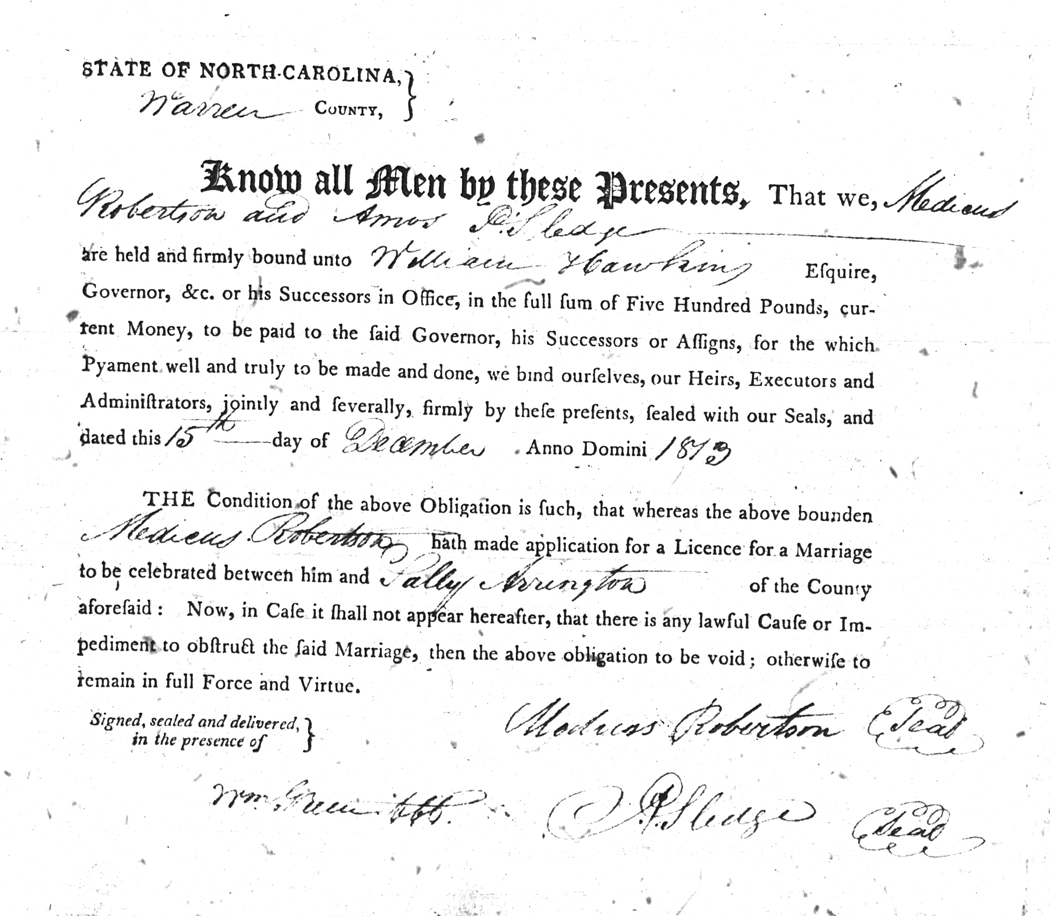 STATE OF NORTH-CAROLINA,
Warren COUNTY,
Know all Men by these Presents, That we, Medicus
Robertson and Amos P. Sledge
are held and firmly bound unto William Hawkins Eſquire,
Governor, &c. or his Successors in Office, in the full ſum of Five Hundred Pounds, cur-
rent Money, to be paid to the ſaid Governor, his Successors or Aſſigns, for the which
Pyament well and truly to be made and done, we bind ourſelves, our Heirs, Executors and
Adminiſtrators, jointly and ſeverally, firmly by theſe preſents, ſealed with our Seals, and
dated this 15th day of December Anno Domini 1813
THE Condition of the above Obligation is ſuch, that whereas the above bounden
Medicus Robertson hath made application for a Licence for a Marriage
to be celebrated between him and Sally Arrington of the County
aforeſaid: Now, in Caſe it ſhall not appear hereafter, that there is any lawful Cauſe or Im-
pediment to obſtruct the ſaid Marriage, then the above obligation to be void; otherwiſe to
remain in full Force and Virtue.
Signed, sealed and delivered,
in the presence of
Medicus Robertson Seal
Wm. Green
A P Sledge Seal